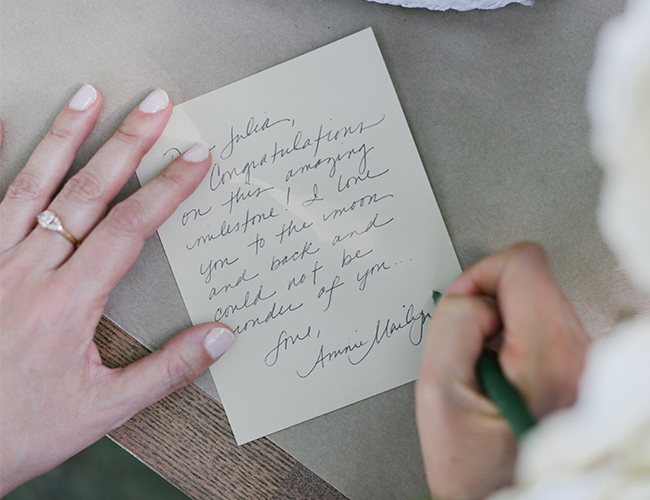 Dear Julia,
Congratulations
on this amazing
milestone! I love
you to the moon
and back and
could not be
prouder of you...
Love,
Annie